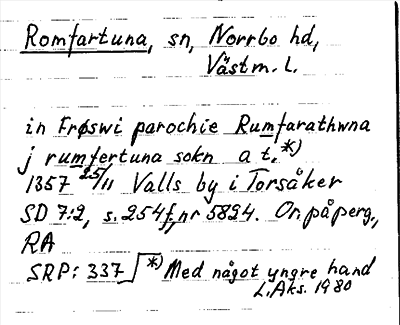 Romfartuna, sn, Norrbo hd,
Västm. L.
in Frøswi parochie Rumfarathwna
j rumfertuna sokn a t.*)
1357 25/11 Valls by i Torsåker
SD 7:2, s. 254 f, nr 5824. Or. på perg.,
RA
SRP: 337 *) Med något yngre hand
L. Aks. 1980